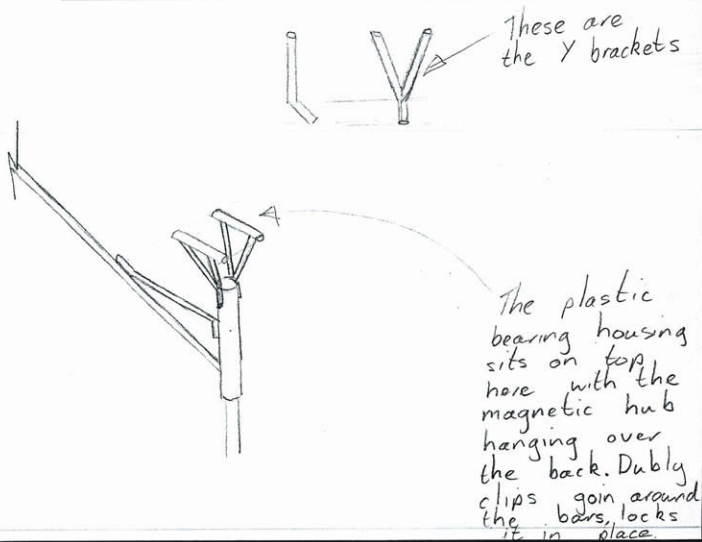 These are
the Y brackets
The plastic
bearing housing
sits on top
here with the
magnetic hub
hanging over
the back. Dubly
clips goin around
the bars, locks
it in place.